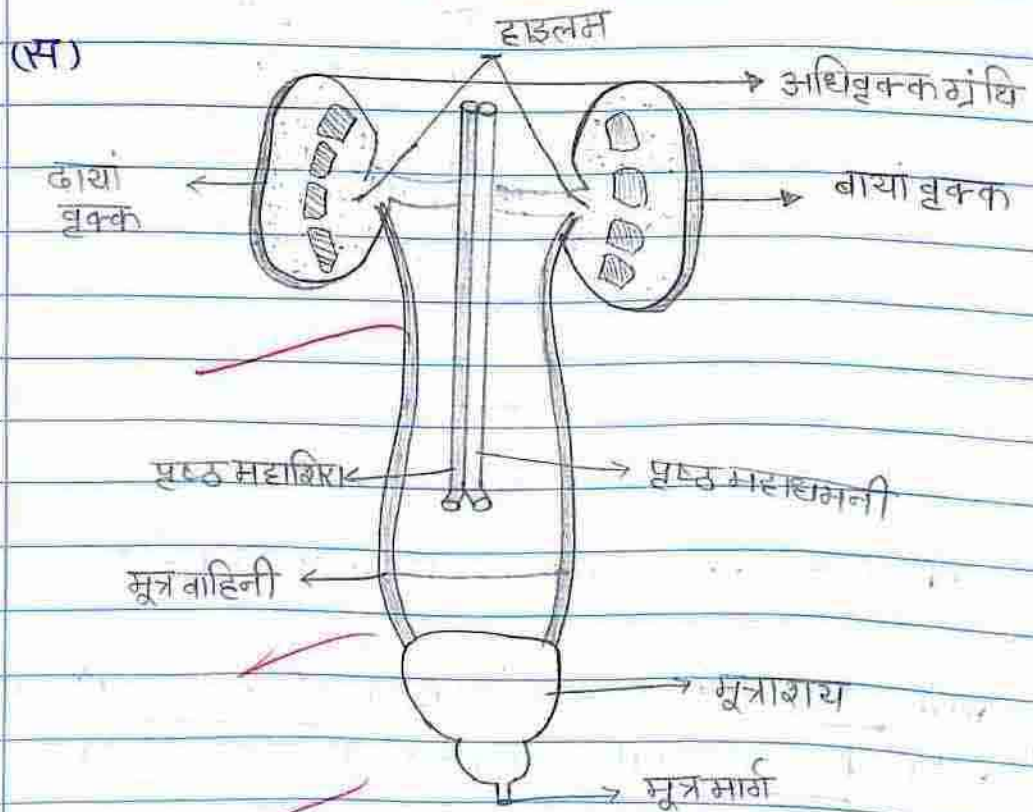 (स)
हाइलम
अधिवृक्क ग्रंथि
दायां
वृक्क
बायां वृक्क
पृष्ठ महाशिरा
पृष्ठ महाधमनी
मूत्र वाहिनी
मूत्राशय
मूत्र मार्ग